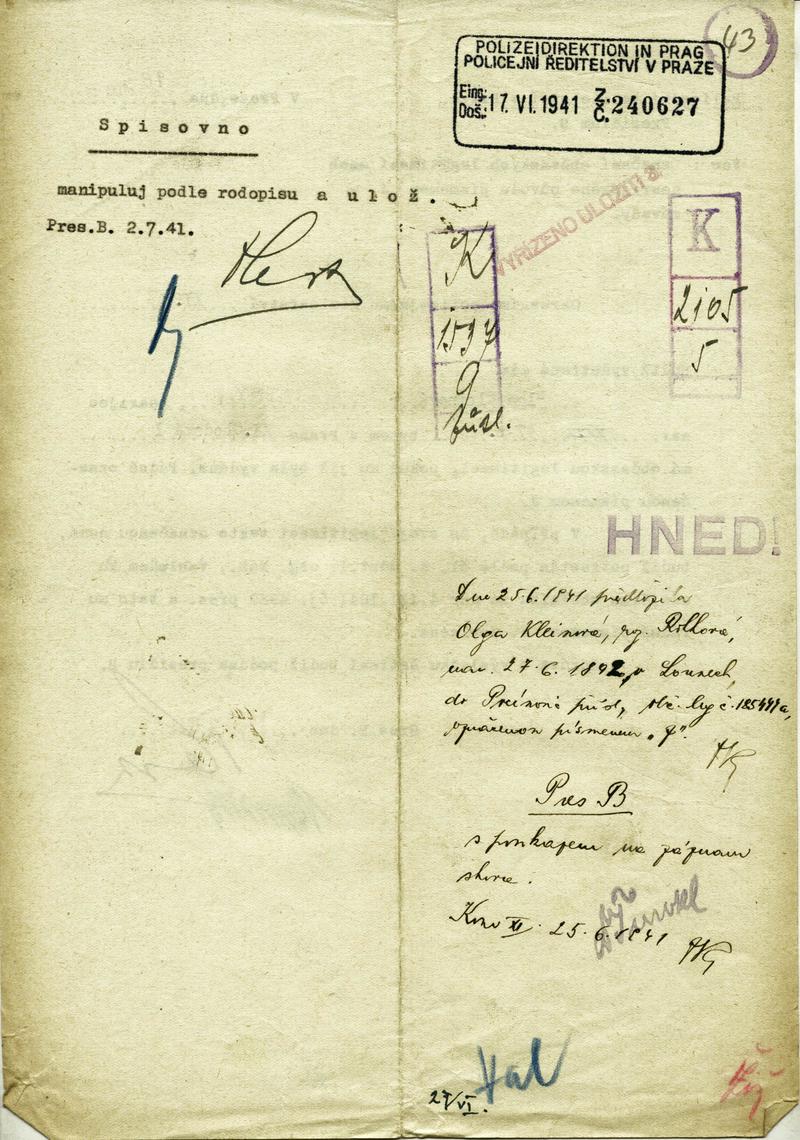 43
POLIZEIDIREKTION IN PRAG
POLICEJNÍ ŘEDITELSTVÍ V PRAZE
Eing.: Z.
Doš.: 17. VI. 1941 Č. 240627
Spisovno
manipuluj podle rodopisu a ulož.
Pres.B. 2.7.41.
VYŘÍZENO ULOŽITI
K
1597
9
K
2105
5
HNED!
Dne 25.6.1941 předložila
Olga Kleinová, roz. Rothová,
nar. 27.6.1892 v Lounech,
obč. leg. č. 185441a,
opatřenou písmenem „J".
Pres B
s poukazem na záznam
shora.
25.6.1941
27/VI.